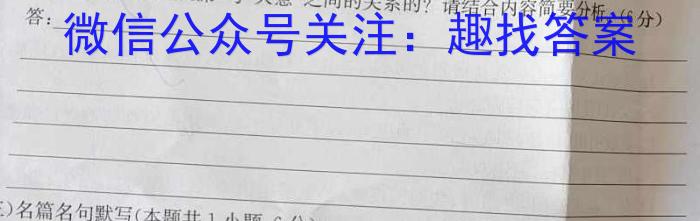 之间的关系的？请结合内容简要分析。(6分)
答：
微信公众号关注：趣找答案
三)名篇名句默写(本题共1小题，6分)